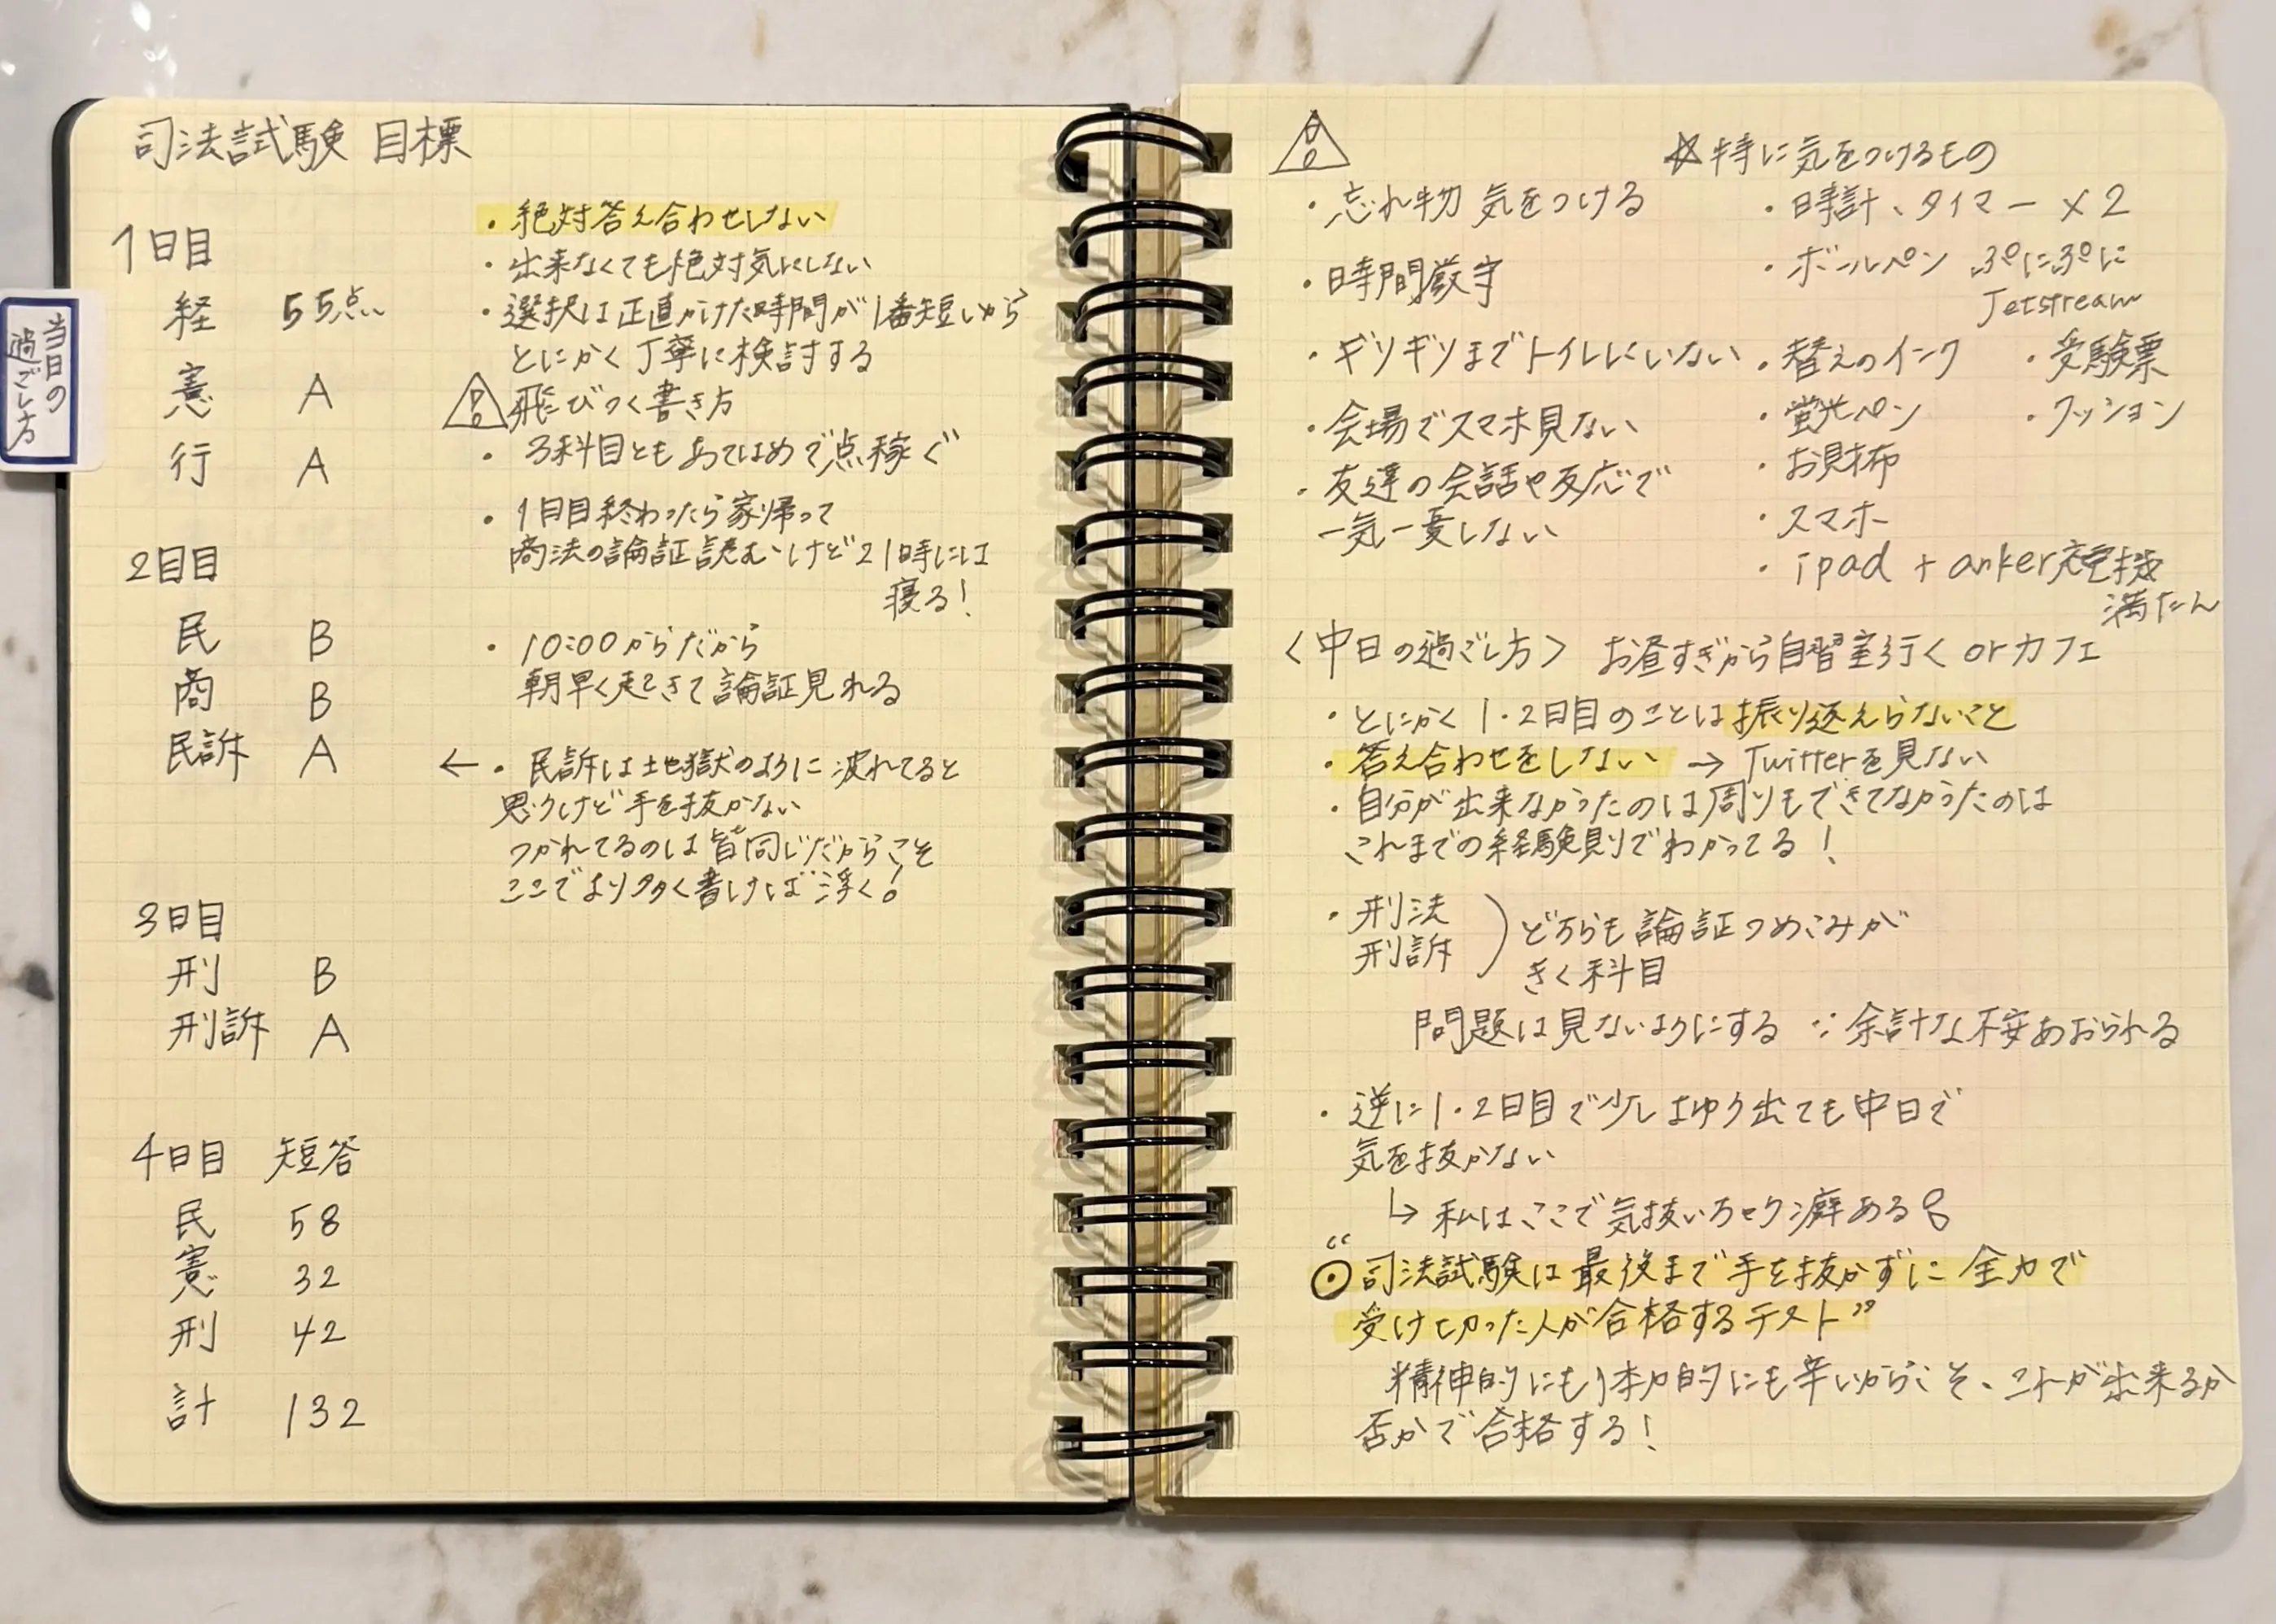 当日の
過ごし方
司法試験 目標
1日目
経 55点
憲 A
行 A
2日目
民 B
商 B
民訴 A
3日目
刑 B
刑訴 A
4日目 短答
民 58
憲 32
刑 42
計 132
・絶対答え合わせしない
・出来なくても絶対気にしない
・選択は正直かけた時間が1番短いから
とにかく丁寧に検討する
飛びつく書き方
・3科目ともあてはめで点稼ぐ
・1日目終わったら家帰って
商法の論証読むけど21時には
寝る!
・10:00からだから
朝早く起きて論証見れる
← ・民訴は地獄のように疲れてると
思うけど手を抜かない
つかれてるのは皆同じだからこそ
ここでより多く書ければ浮く!
・忘れ物 気をつける
・時間厳守
・ギリギリまでトイレにいない
・会場でスマホ見ない
・友達の会話や反応で
一気一憂しない
☆特に気をつけるもの
・時計、タイマー ×2
・ボールペン ぷにぷに
Jetstream
・替えのインク ・受験票
・蛍光ペン ・クッション
・お財布
・スマホ
・ipad + anker充電機
満たん
<中日の過ごし方> お昼すぎから自習室行く orカフェ
・とにかく1・2日目のことは振り返えらないこと
・答え合わせをしない → Twitterを見ない
・自分が出来なかったのは周りもできてなかったのは
これまでの経験則でわかってる!
・刑法
刑訴
どちらも論証つめこみが
きく科目
問題は見ないようにする ∵余計な不安あおられる
・逆に1・2日目で少しよゆう出ても中日で
気を抜かない
↳ 私はここで気抜いちゃう癖ある
“◎司法試験は最後まで手を抜かずに全力で
受け切った人が合格するテスト”
精神的にも体力的にも辛いからこそ、これが出来るか
否かで合格する!